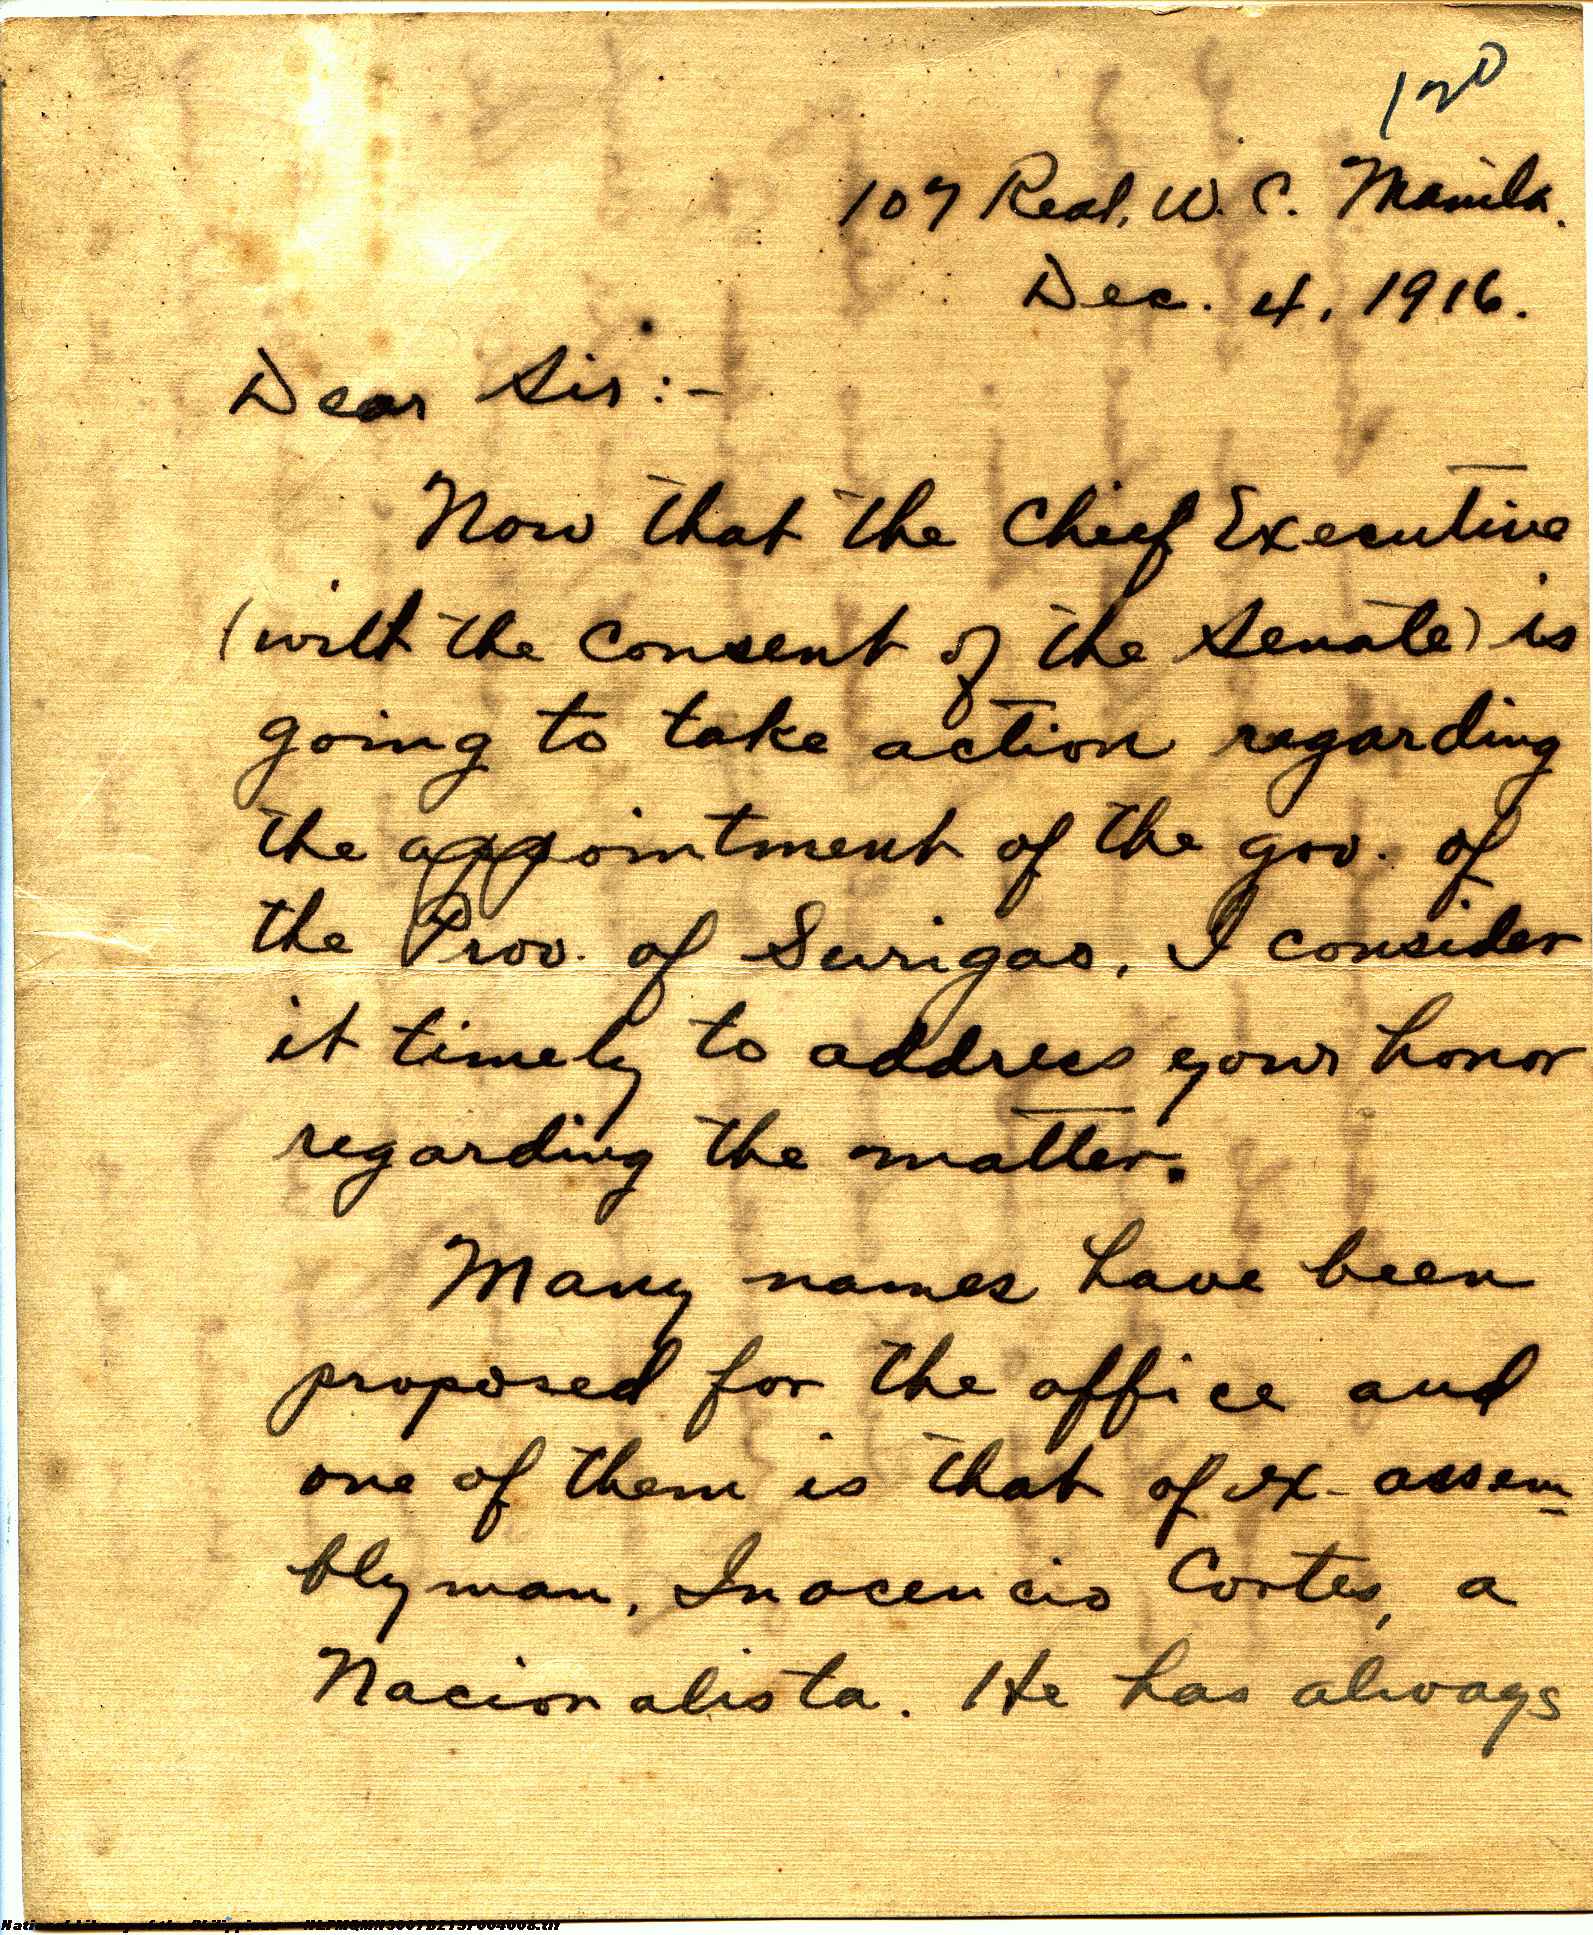 120
107 Real, W. C. Manila.
Dec. 4, 1916.
Dear Sir:-
Now that the Chief Executive
(with the consent of the Senate) is
going to take action regarding
the appointment of the gov. of
the Prov. of Surigao, I consider
it timely to address your honor
regarding the matter.
Many names have been
proposed for the office and
one of them is that of ex-assem-
blyman, Inocencio Cortes, a
Nacionalista. He has always
National Library of the Philippines